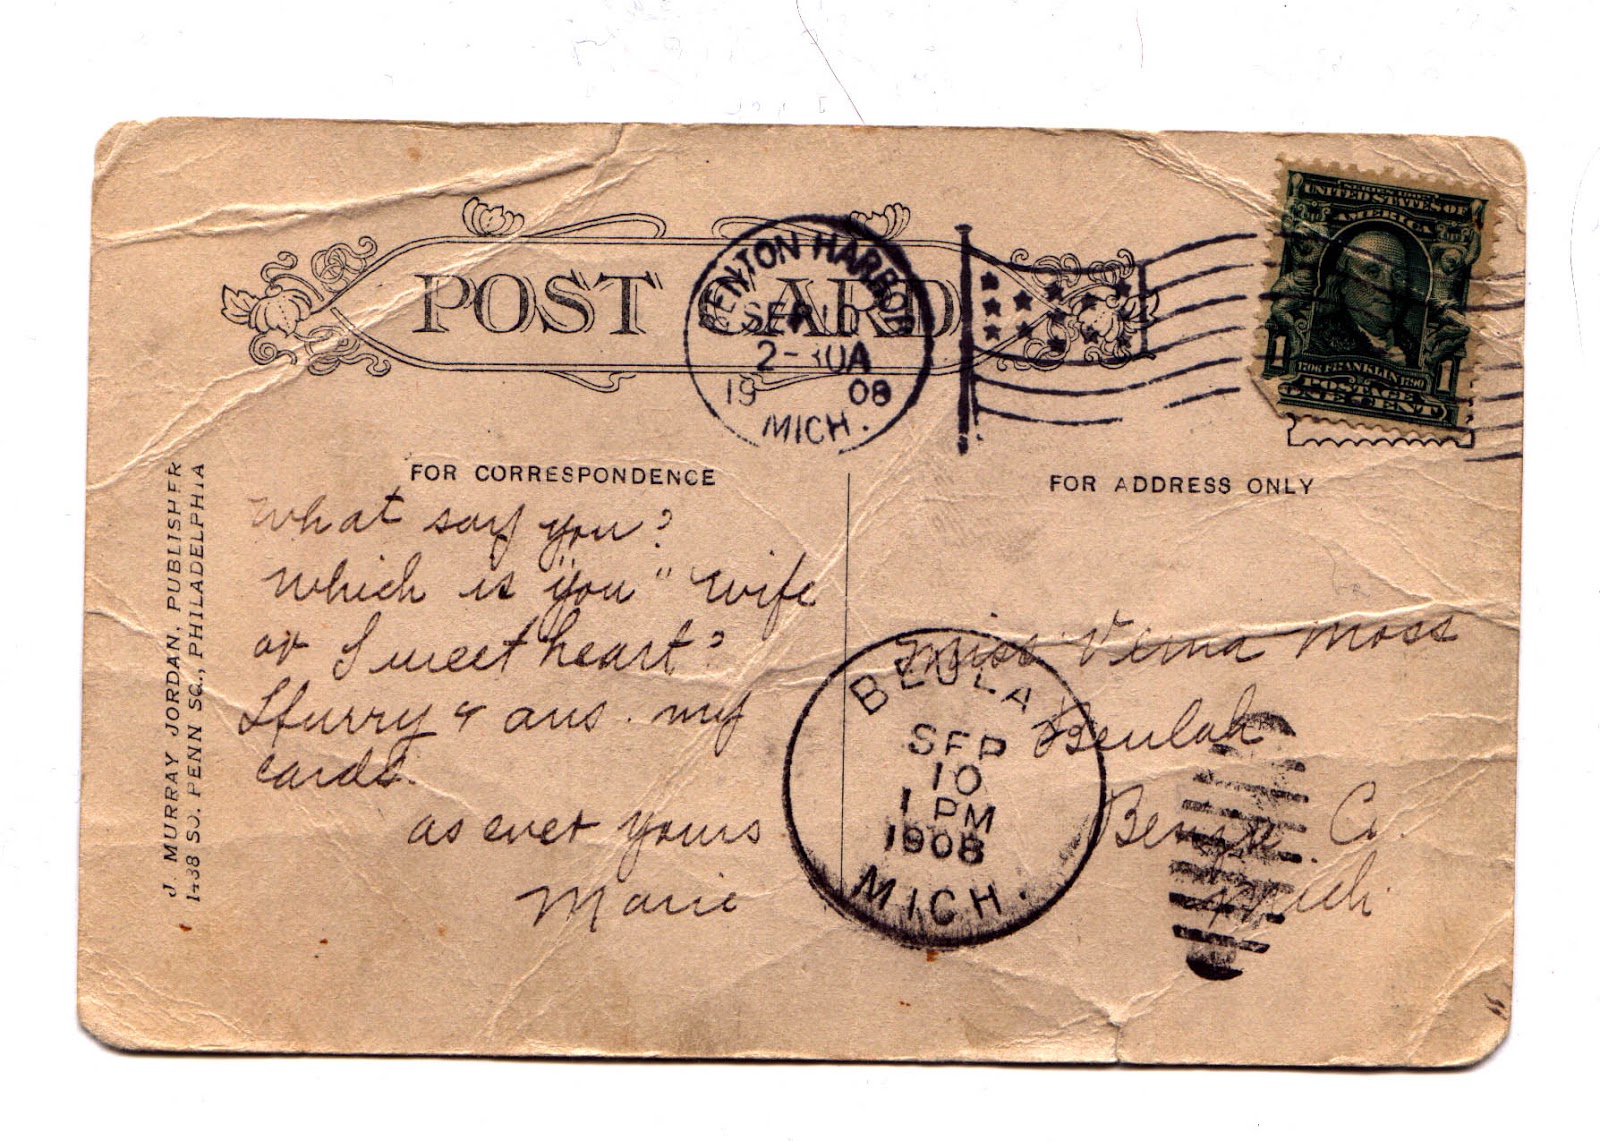 POST CARD
BENTON HARBOR
SEP 10
2-30A
1908
MICH.
UNITED STATES OF
AMERICA
1 1
1706 FRANKLIN 1790
POSTAGE
ONE CENT
FOR CORRESPONDENCE
FOR ADDRESS ONLY
J. MURRAY JORDAN, PUBLISHER
1438 SO. PENN SQ., PHILADELPHIA
What say you?
Which is "you" wife
or Sweet heart?
Hurry & ans. my
cards.
as ever yours
Marie
Miss Verna Moss
Beulah
Benzie Co.
Mich.
BEULAH
SEP
10
1 PM
1908
MICH.